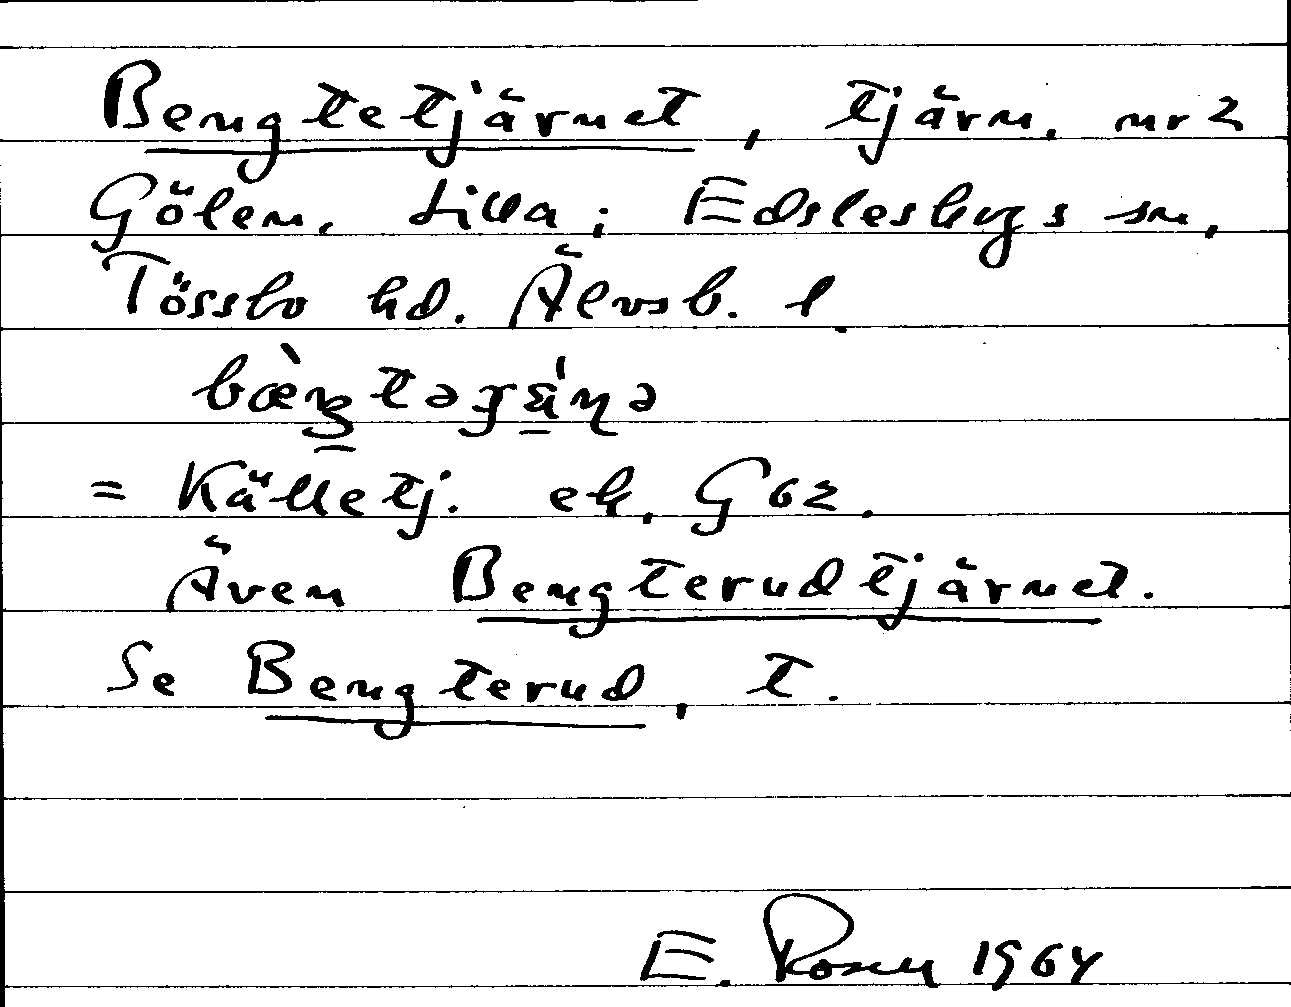 Bengtetjärnet, tjärn, nr 2
Gölen, Lilla; Edsleskogs sn,
Tössbo hd. Älvsb. l.
= Källetj. ek. G 62.
Även Bengterudtjärnet.
Se Bengterud, t.
E. Rosen 1964